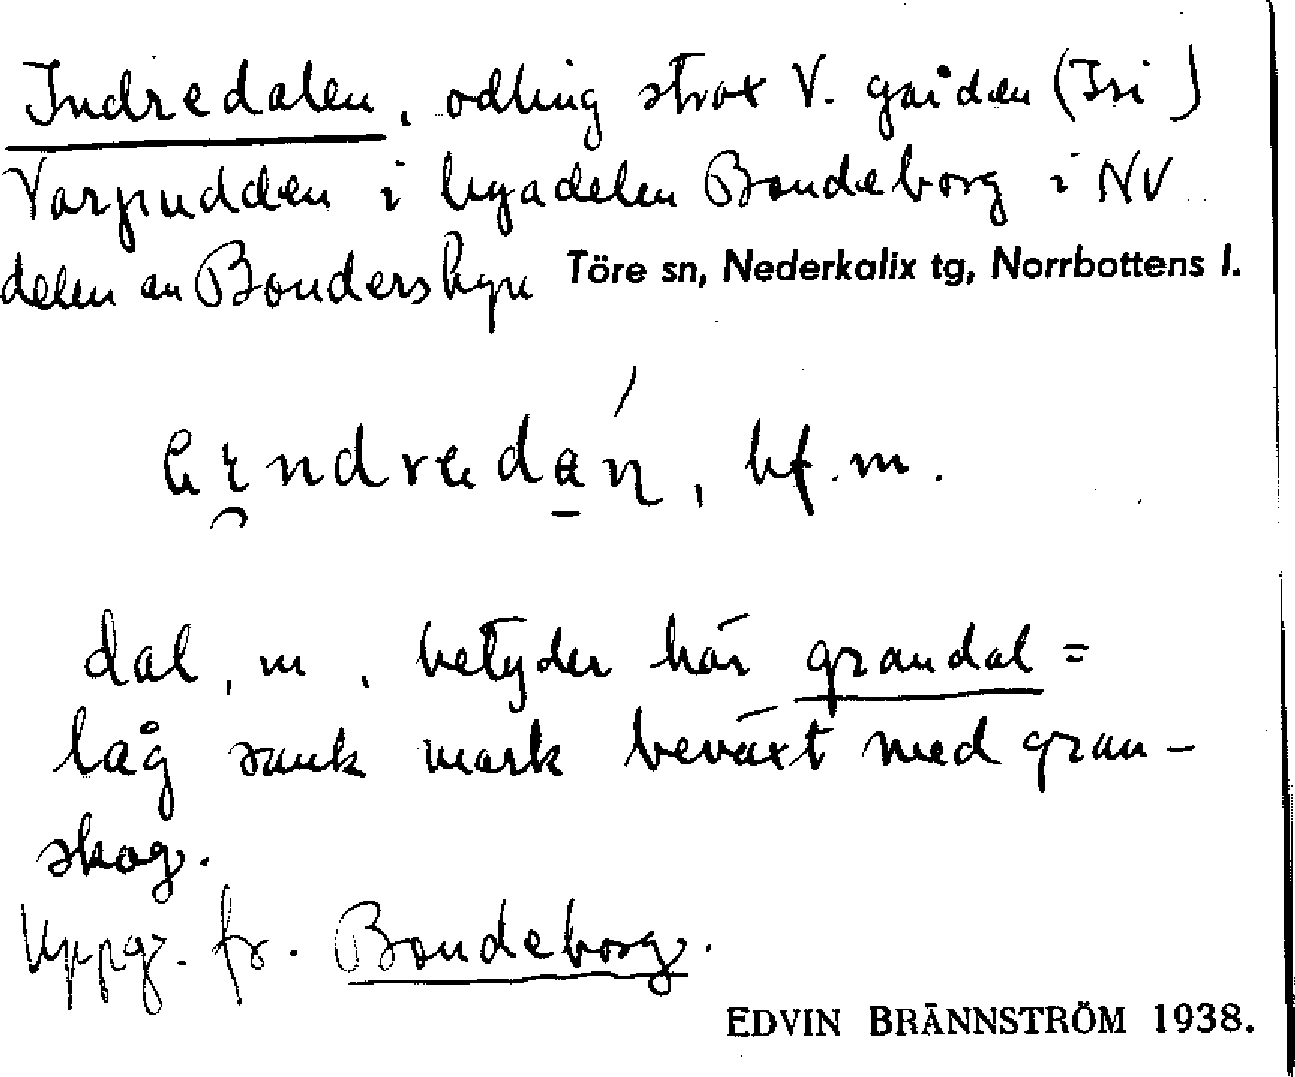 Indredalen, odling strax V. gården (Iri)
Varpudden i byadelen Bondeborg i NV
delen av Bondersbyn Töre sn, Nederkalix tg, Norrbottens l.
bf. m.
dal, m. betyder här grandal =
låg sank mark beväxt med gran-
skog.
Uppg. fr. Bondeborg.
EDVIN BRÄNNSTRÖM 1938.